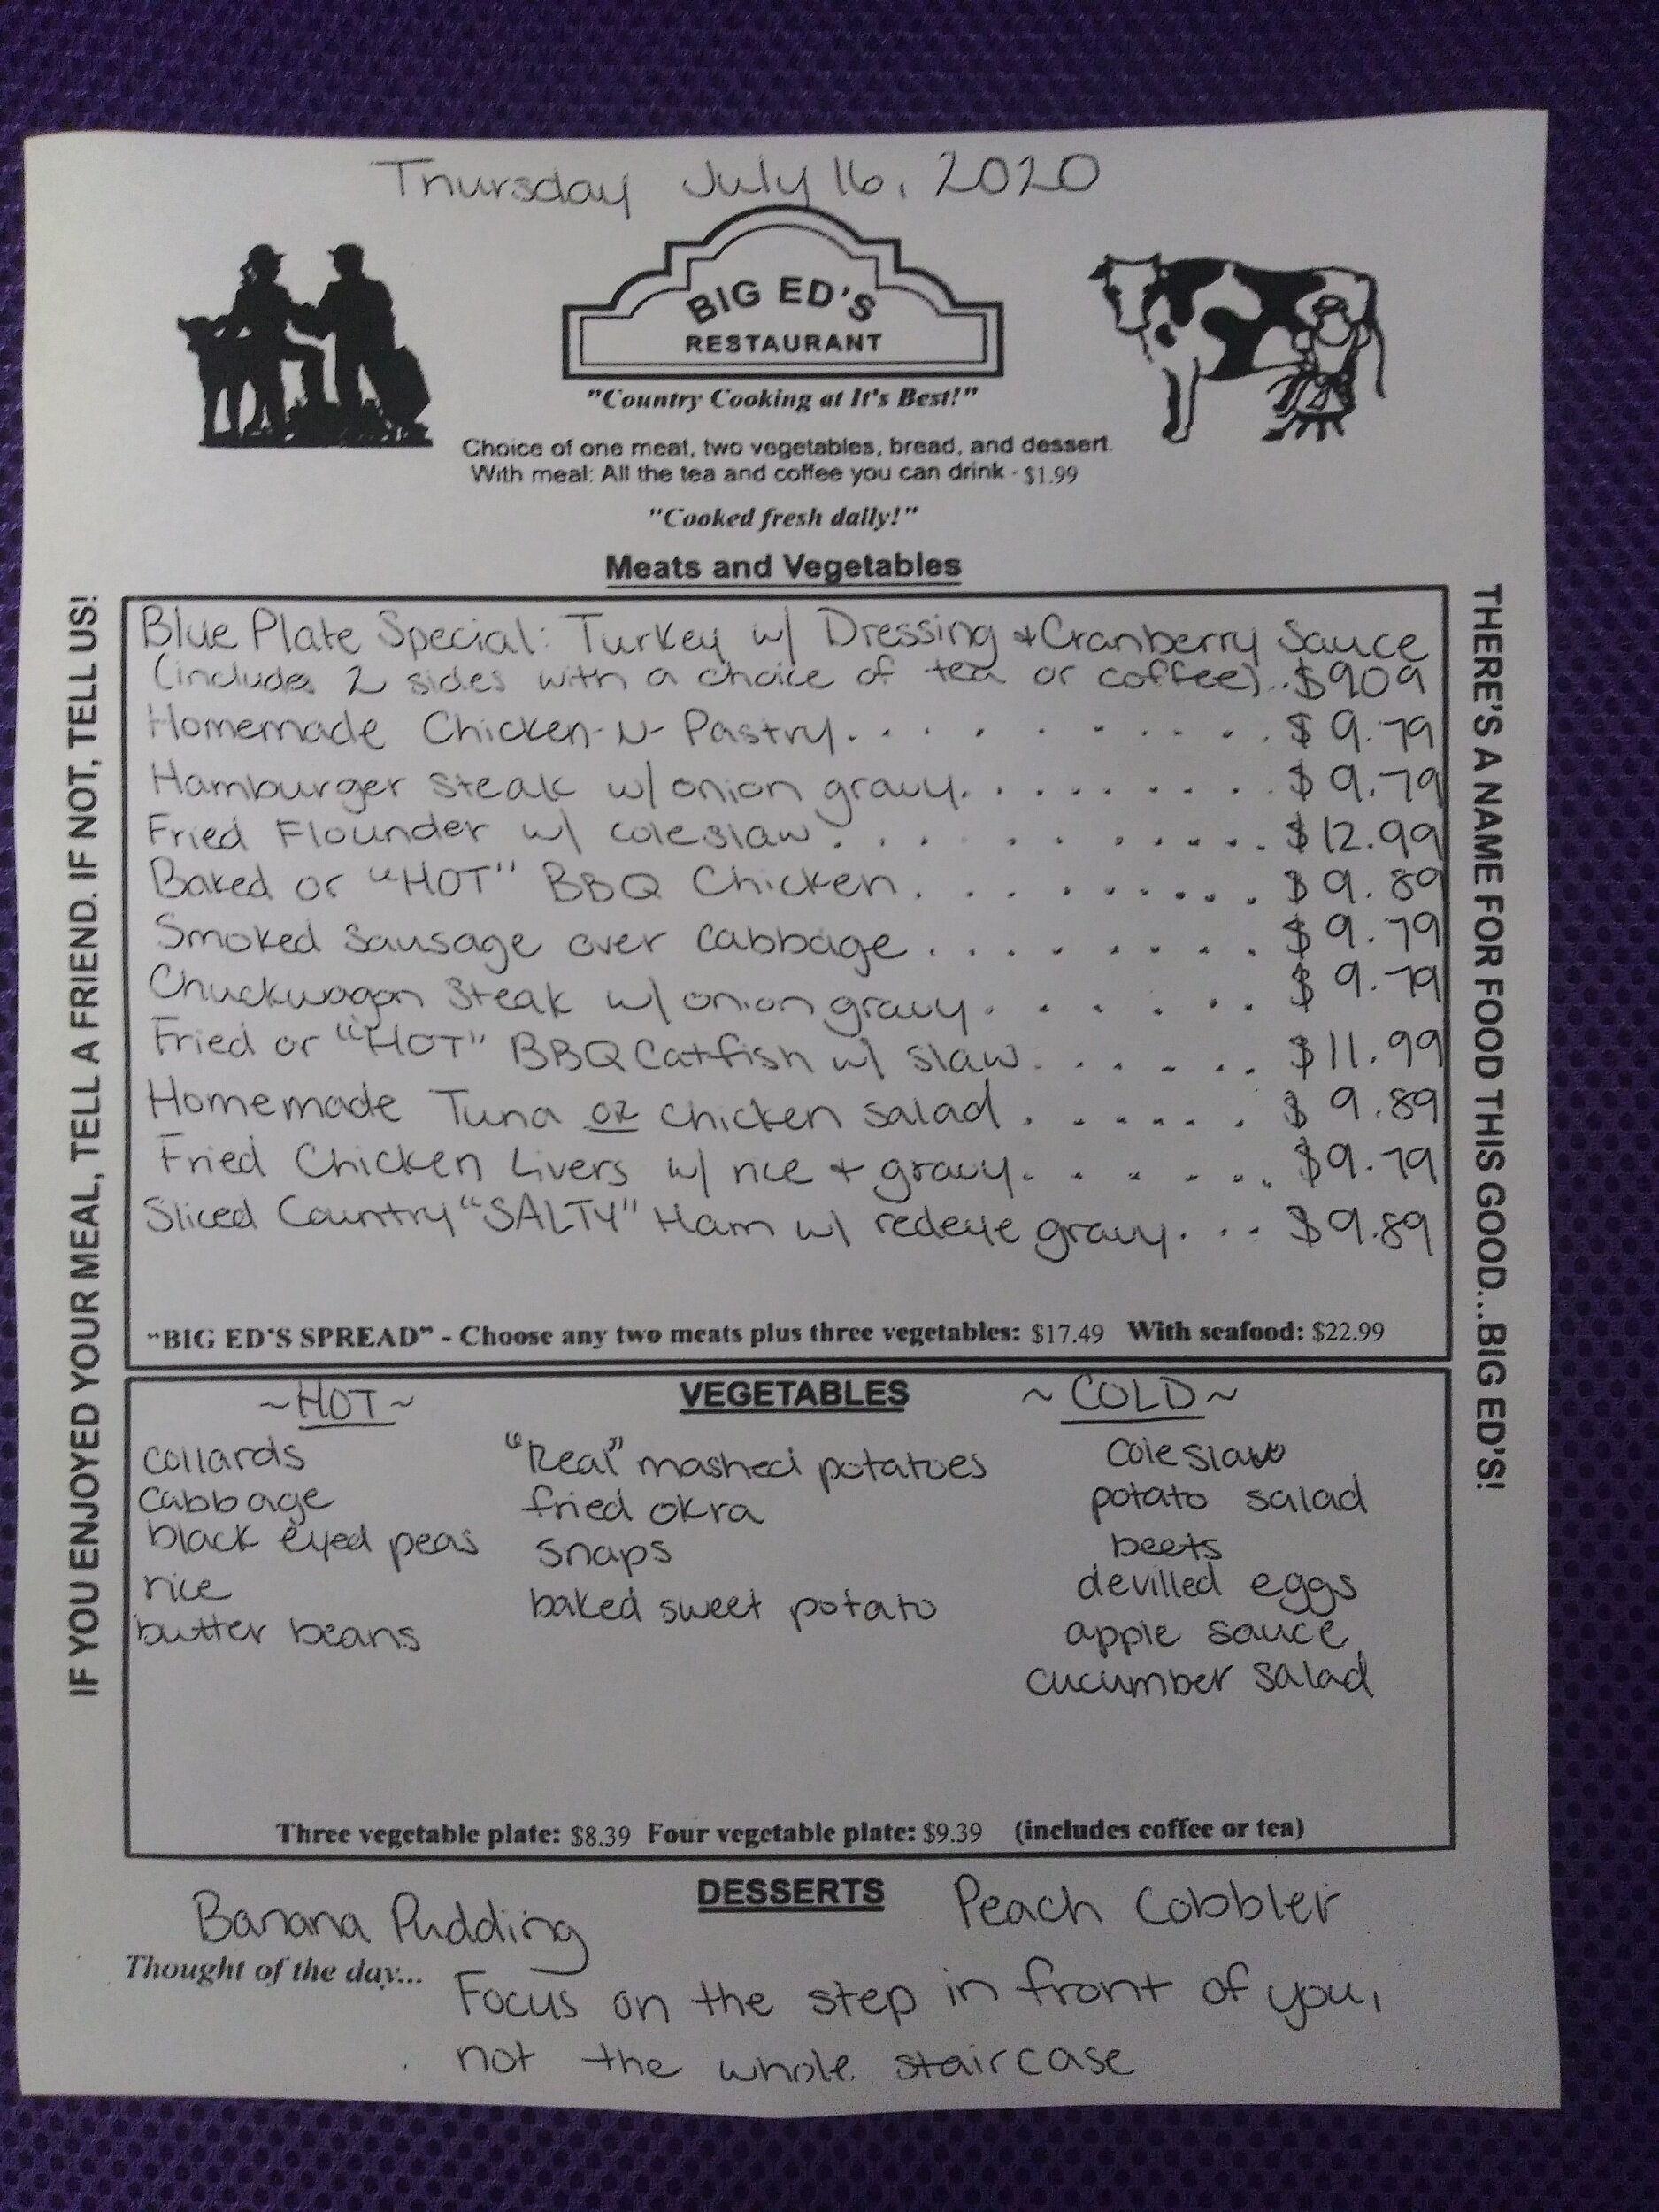 Thursday July 16, 2020
BIG ED'S
RESTAURANT
"Country Cooking at It's Best!"
Choice of one meat, two vegetables, bread, and dessert.
With meal: All the tea and coffee you can drink - $1.99
"Cooked fresh daily!"
Meats and Vegetables
Blue Plate Special: Turkey w/ Dressing & Cranberry Sauce
(includes 2 sides with a choice of tea or coffee)..$909
Homemade Chicken-N-Pastry. . . . . . . . . . $ 9.79
Hamburger Steak w/ onion gravy. . . . . . . . . $ 9.79
Fried Flounder w/ coleslaw. . . . . . . . . . . $12.99
Baked or "HOT" BBQ Chicken. . . . . . . . . $ 9.89
Smoked Sausage over cabbage . . . . . . . . . $ 9.79
Chuckwagon Steak w/ onion gravy. . . . . . . $ 9.79
Fried or "HOT" BBQ Catfish w/ slaw. . . . . . $11.99
Homemade Tuna or chicken salad. . . . . . . $ 9.89
Fried Chicken Livers w/ rice & gravy. . . . . . . $9.79
Sliced Country "SALTY" Ham w/ redeye gravy. . . . $9.89
"BIG ED'S SPREAD" - Choose any two meats plus three vegetables: $17.49 With seafood: $22.99
IF YOU ENJOYED YOUR MEAL, TELL A FRIEND. IF NOT, TELL US!
THERE'S A NAME FOR FOOD THIS GOOD...BIG ED'S!
VEGETABLES
~HOT~
collards
cabbage
black eyed peas
rice
butter beans
"Real" mashed potatoes
fried okra
snaps
baked sweet potato
~COLD~
coleslaw
potato salad
beets
devilled eggs
apple sauce
cucumber salad
Three vegetable plate: $8.39 Four vegetable plate: $9.39 (includes coffee or tea)
DESSERTS
Banana Pudding
Peach Cobbler
Thought of the day...
Focus on the step in front of you,
not the whole staircase